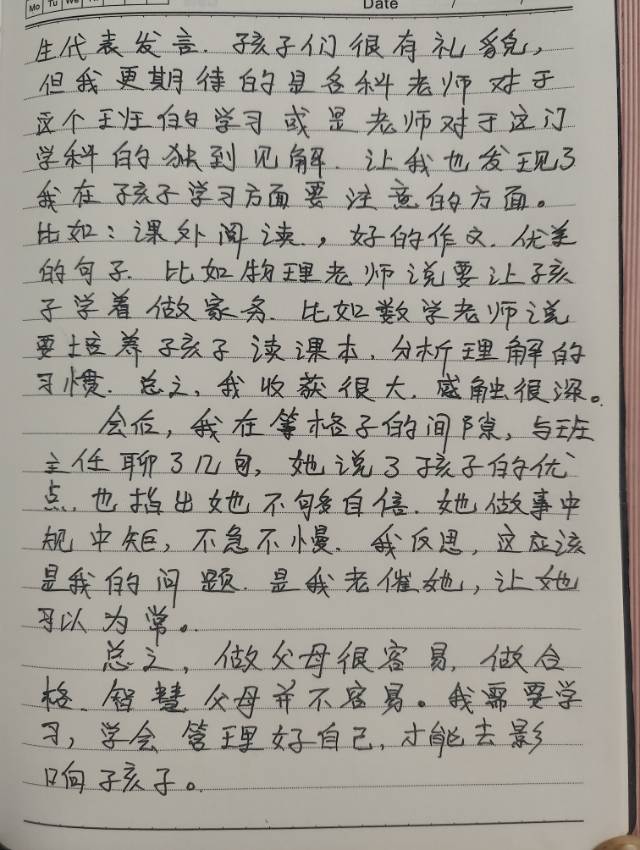 Mo Tu We
Date
生代表发言. 孩子们很有礼貌,
但我更期待的是各科老师对于
这个班的学习或是老师对于这门
学科的独到见解. 让我也发现了
我在孩子学习方面要注意的方面。
比如:课外阅读., 好的作文. 优美
的句子. 比如物理老师说要让孩
子学着做家务. 比如数学老师说
要培养孩子读课本, 分析理解的
习惯. 总之, 我收获很大. 感触很深。
会后, 我在等格子的间隙, 与班
主任聊了几句, 她说了孩子的优
点, 也指出她不够自信. 她做事中
规中矩, 不急不慢. 我反思, 这应该
是我的问题. 是我老催她, 让她
习以为常。
总之, 做父母很容易, 做合
格、智慧父母并不容易。我需要学
习, 学会管理好自己, 才能去影
响孩子。